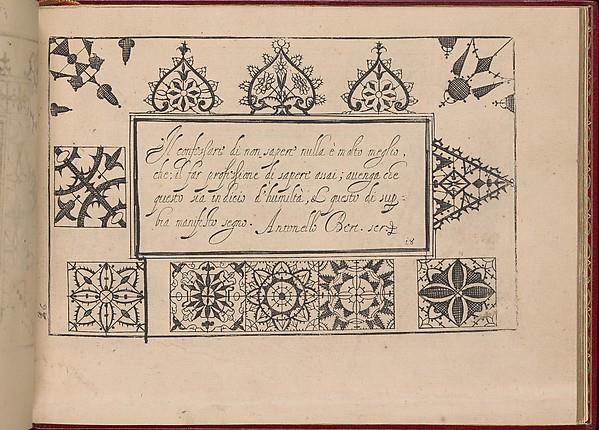 Il confessare di non sapere nulla è molto meglio,
che, il far professione di sapere assai; auenga che
questo sia indicio d'humiltà, & questo di sup,,
bia manifesto segno. Antonello Bert. scr.
18